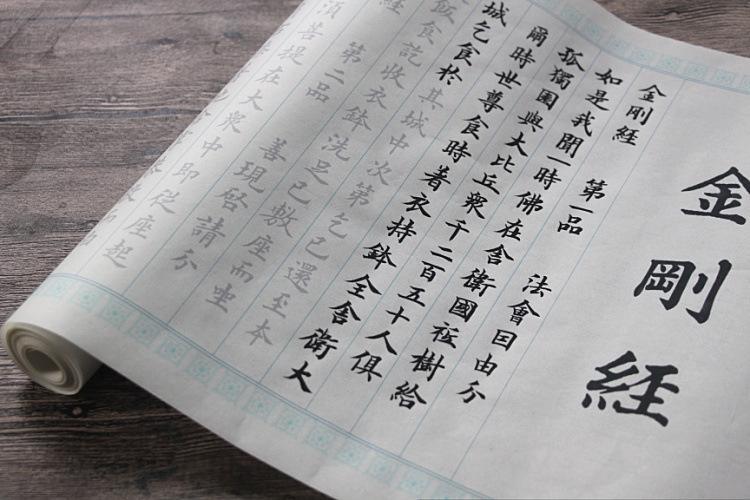 金剛経
金剛経 第一品 法會囙由分
如是我聞一時佛在舍衛國祇樹給
孤獨園與大比丘衆千二百五十人俱
爾時世尊食時著衣持鉢全舍衛大
城乞食於其城中次第乞已還至本
飯食訖收衣鉢洗足已敷座而坐
経 第二品 善現啓請分
須菩提在大衆中即從座起